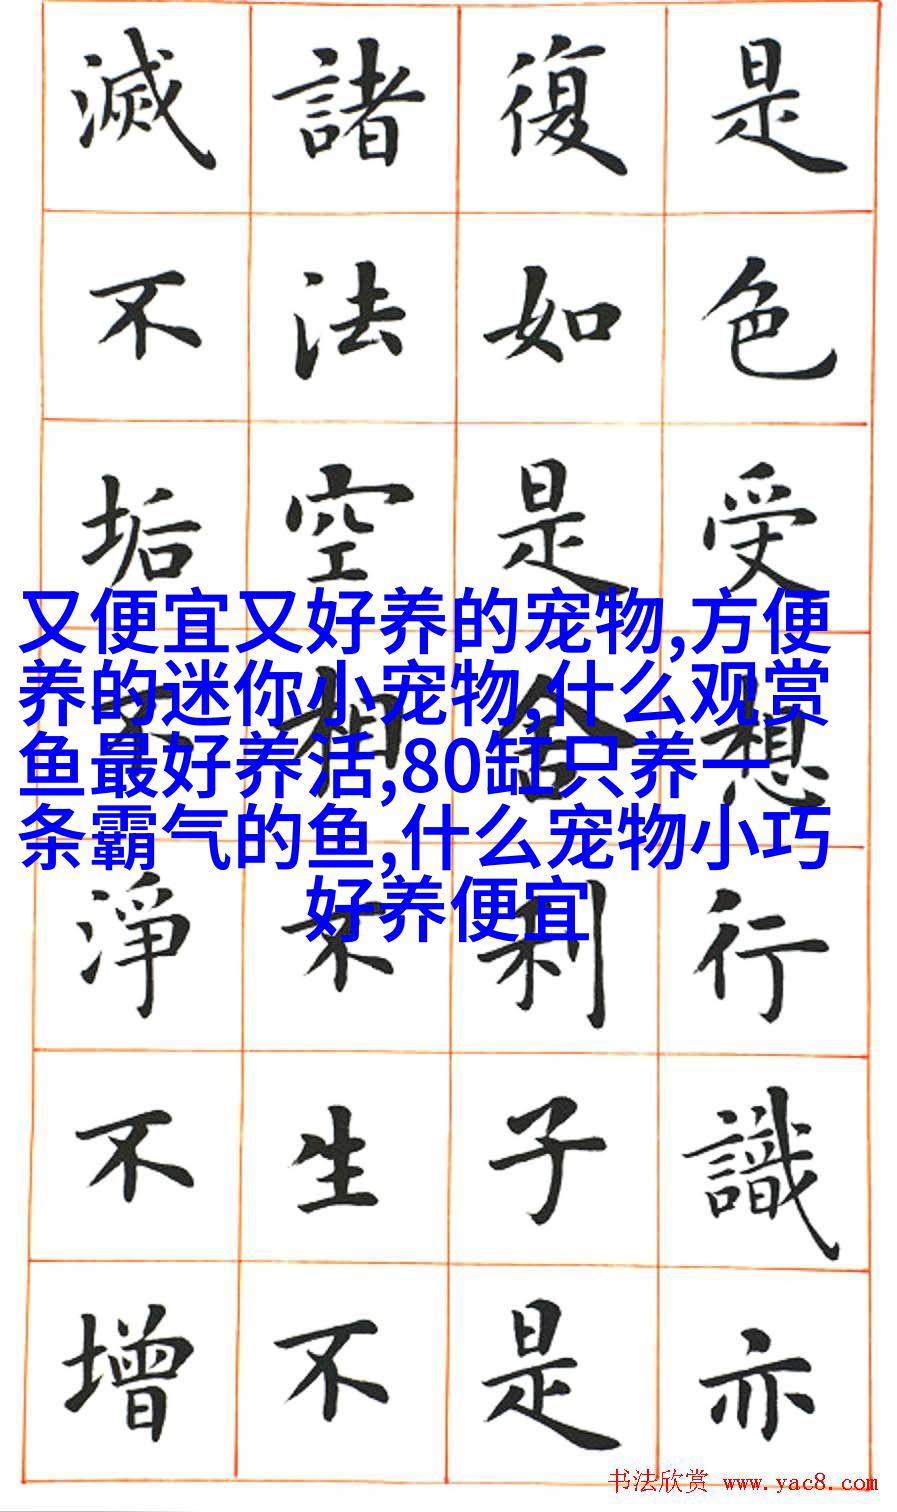 是色受想行識亦
復如是舍利子是
諸法空相不生不
滅不垢不淨不增
又便宜又好养的宠物,方便
养的迷你小宠物,什么观赏
鱼最好养活,80缸只养一
条霸气的鱼,什么宠物小巧
好养便宜
书法欣赏 www.yac8.com